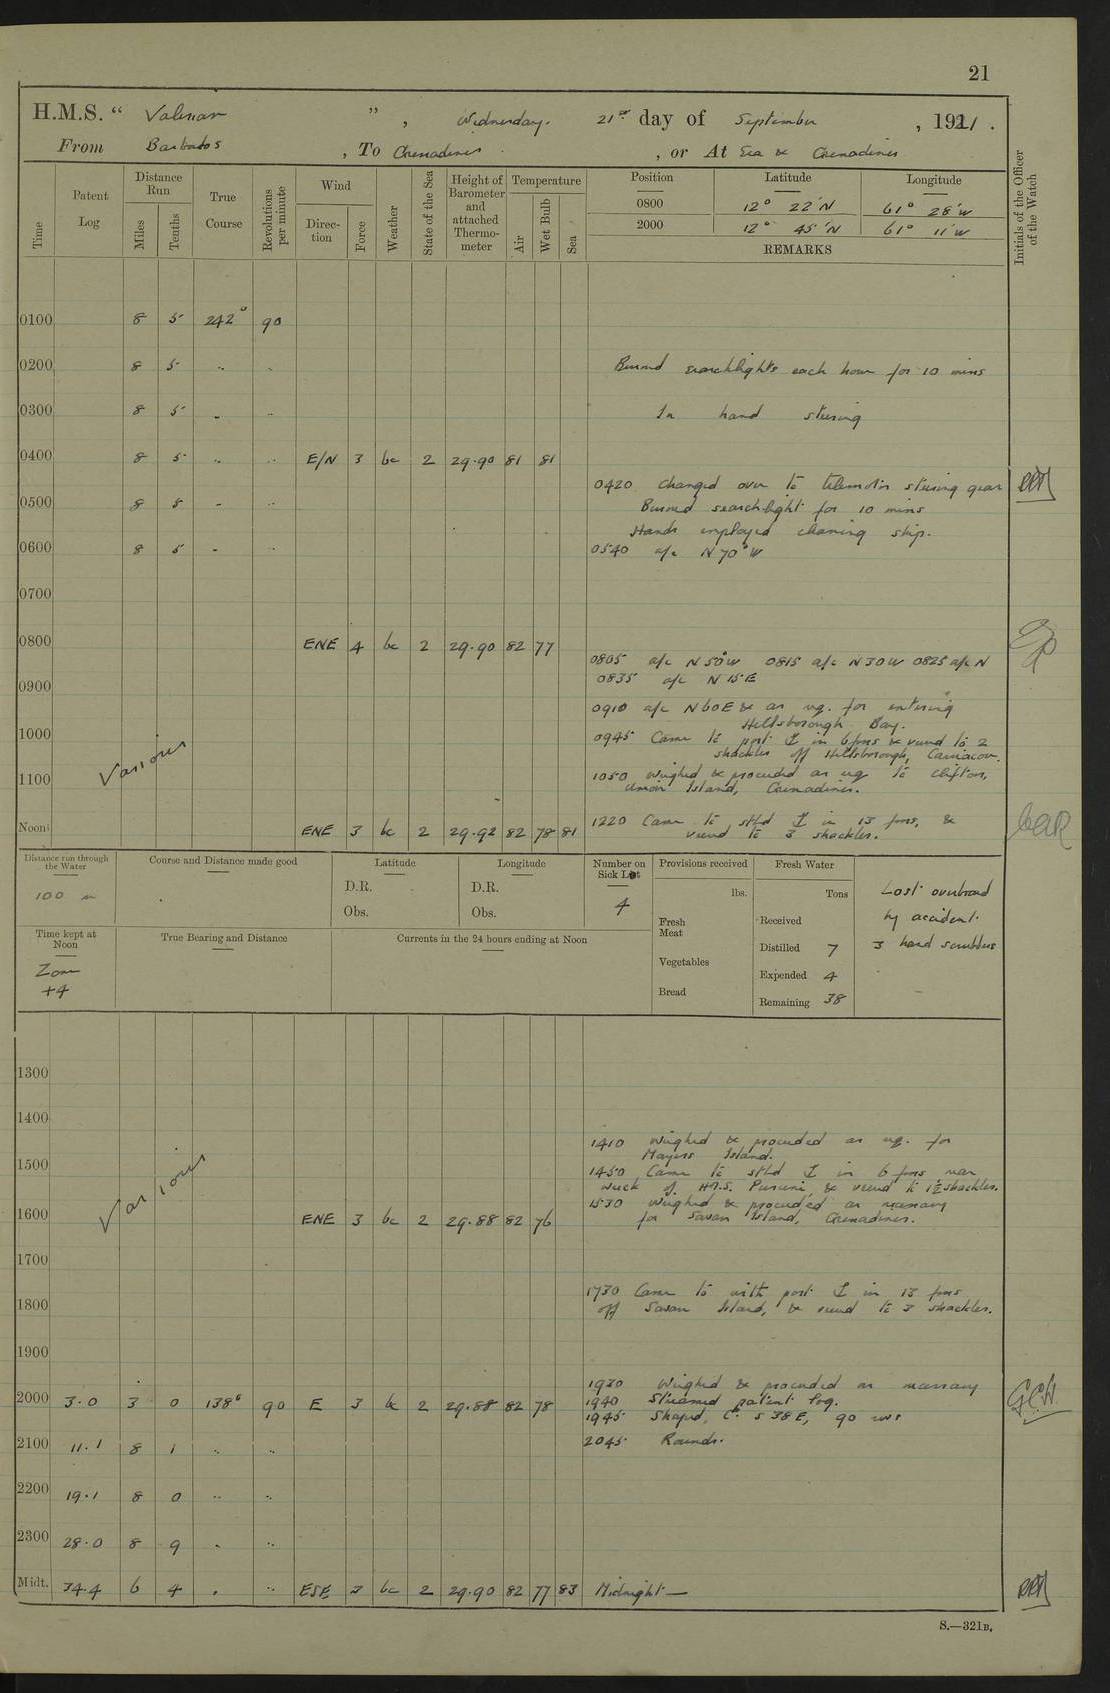 21
H.M.S. “ Valerian ” , Wednesday. 21st day of September , 1921 .
From Barbados , To Grenadines . , or At Sea & Grenadines
Time Patent Log Distance Run Miles Tenths True Course Revolutions per minute Wind Direction Force Weather State of the Sea Height of Barometer and attached Thermometer Temperature Air Wet Bulb Sea Position Latitude Longitude Initials of the Officer of the Watch
0800 12° 22'N 61° 28'W
2000 12° 45'N 61° 11'W
REMARKS
0100 8 5 242° 90
0200 8 5 " " Burned searchlights each hour for 10 mins
0300 8 5 " " In hand steering
0400 8 5 " " E/N 3 bc 2 29.90 81 81
0420 changed over to telemotor steering gear
0500 8 5 " " Burned searchlight for 10 mins
Hands employed cleaning ship.
0600 8 5 " " 0540 a/c N70°W
0700
0800 ENE 4 bc 2 29.90 82 77
0805 a/c N50°W 0815 a/c N30W 0825 a/c N
0900 0835 a/c N15E
0910 a/c N60E & as nq. for entering
Hillsborough Bay.
1000 0945 Came to port ⚓ in 6 fms & veered to 2
shackles off Hillsborough, Carriacou.
Various
1100 1050 Weighed & proceeded as nq to Clifton,
Union Island, Grenadines.
1220 Came to stbd ⚓ in 13 fms, &
Noon ENE 3 bc 2 29.92 82 78 81 veered to 3 shackles.
Distance run through the Water Course and Distance made good Latitude Longitude Number on Sick List Provisions received Fresh Water
100 D.R. D.R. 4 lbs. Tons Lost overboard
Obs. Obs. Fresh Meat Received by accident
Time kept at Noon True Bearing and Distance Currents in the 24 hours ending at Noon Distilled 7 3 hand scrubbers
Zone Vegetables
+4 Expended 4
Bread Remaining 38
1300
1400
1410 Weighed & proceeded as nq. for
Mayers Island.
1500 1450 Came to stbd ⚓ in 6 fms near
wreck of H.M.S. Puruni & veered to 1½ shackles.
Various
1530 Weighed & proceeded as necessary
1600 ENE 3 bc 2 29.88 82 76 for Savan Island, Grenadines.
1700
1730 Came to with port ⚓ in 13 fms
1800 off Savan Island, & veered to 3 shackles.
1900
1930 Weighed & proceeded as necessary
2000 3.0 3 0 138° 90 E 3 bc 2 29.88 82 78 1940 Streamed patent log. GCH
1945 Shaped Co. S38E, 90 revs
2100 11.1 8 1 " " 2045 Rounds.
2200 19.1 8 0 " "
2300 28.0 8 9 " "
Midt. 34.4 6 4 " " ESE 3 bc 2 29.90 82 77 83 Midnight—
S.—321B.